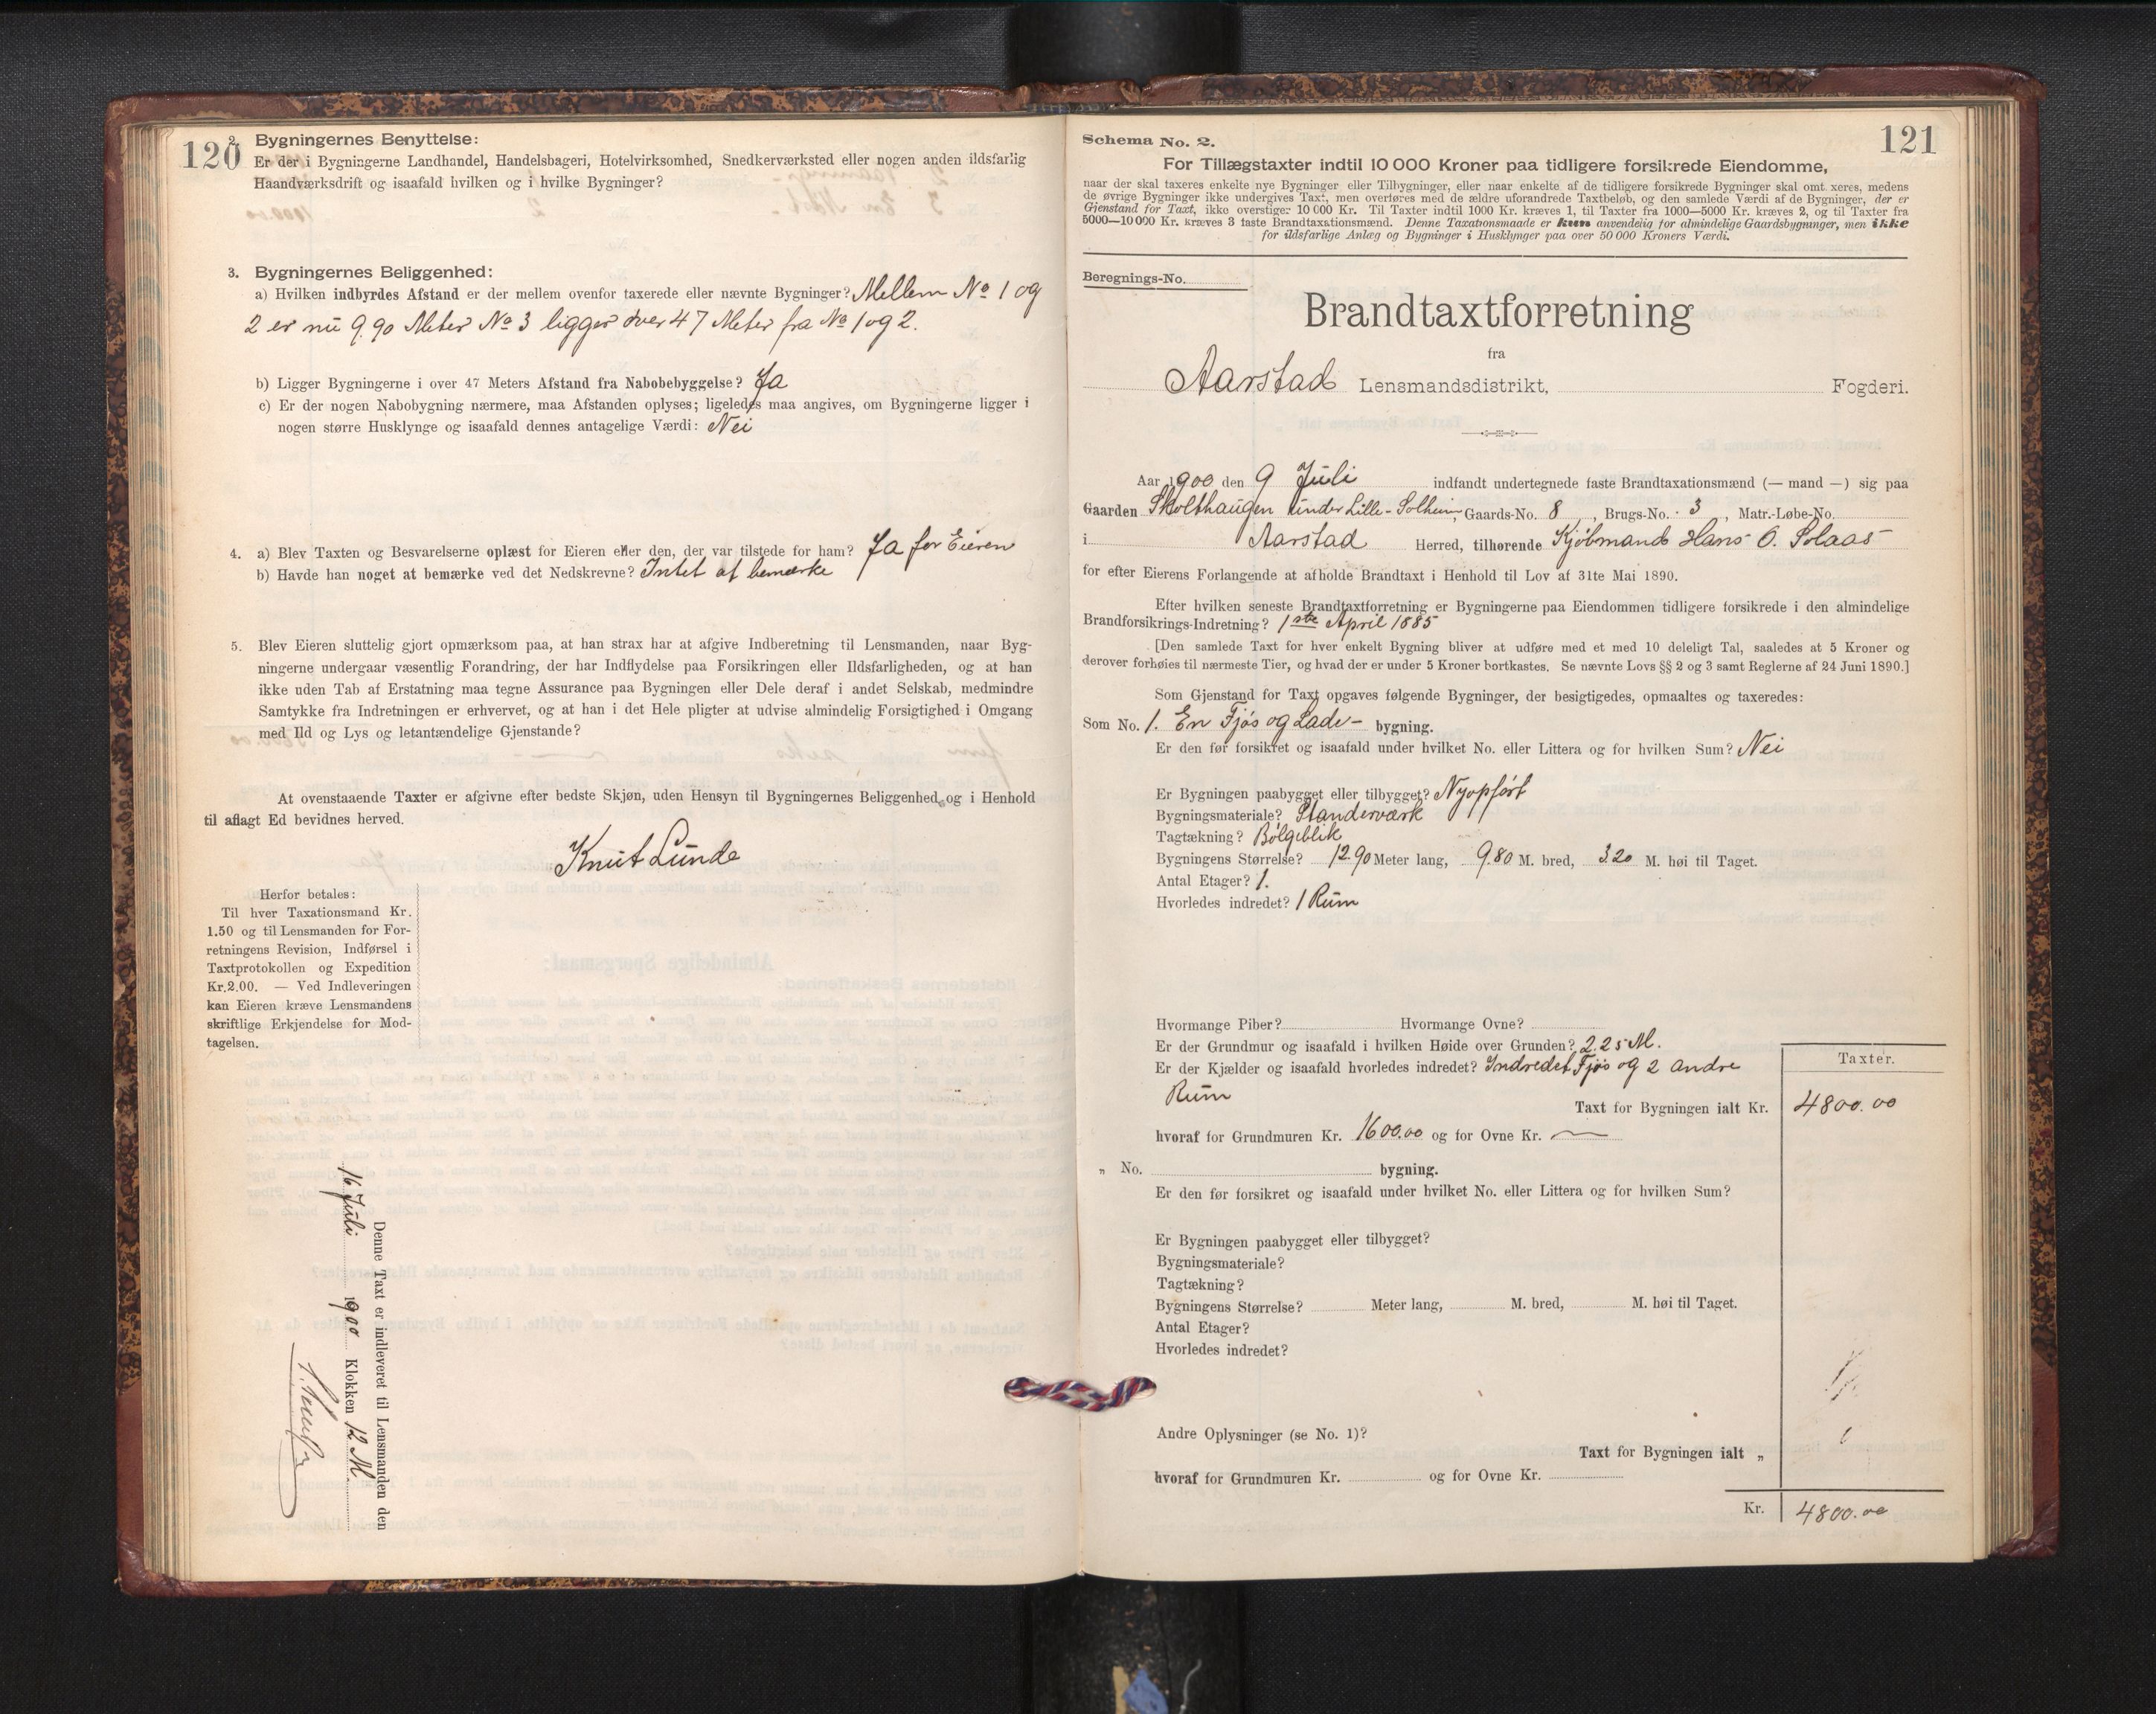 120
2. Bygningernes Benyttelse:
Er der i Bygningerne Landhandel, Handelsbageri, Hotelvirksomhed, Snedkerværksted eller nogen anden ildsfarlig
Haandværksdrift og isaafald hvilken og i hvilke Bygninger?
3. Bygningernes Beliggenhed:
a) Hvilken indbyrdes Afstand er der mellem ovenfor taxerede eller nævnte Bygninger? Mellem No 1 og
2 er nu 9.90 Meter No 3 ligger over 47 Meter fra No 1 og 2.
b) Ligger Bygningerne i over 47 Meters Afstand fra Nabobebyggelse? Ja
c) Er der nogen Nabobygning nærmere, maa Afstanden oplyses; ligeledes maa angives, om Bygningerne ligger i
nogen større Husklynge og isaafald dennes antagelige Værdi: Nei
4. a) Blev Taxten og Besvarelserne oplæst for Eieren eller den, der var tilstede for ham? Ja for Eieren
b) Havde han noget at bemærke ved det Nedskrevne? Intet at bemærke
5. Blev Eieren sluttelig gjort opmærksom paa, at han strax har at afgive Indberetning til Lensmanden, naar Byg-
ningerne undergaar væsentlig Forandring, der har Indflydelse paa Forsikringen eller Ildsfarligheden, og at han
ikke uden Tab af Erstatning maa tegne Assurance paa Bygningen eller Dele deraf i andet Selskab, medmindre
Samtykke fra Indretningen er erhvervet, og at han i det Hele pligter at udvise almindelig Forsigtighed i Omgang
med Ild og Lys og letantændelige Gjenstande?
At ovenstaaende Taxter er afgivne efter bedste Skjøn, uden Hensyn til Bygningernes Beliggenhed og i Henhold
til aflagt Ed bevidnes herved.
Knut Lunde
Herfor betales:
Til hver Taxationsmand Kr.
1.50 og til Lensmanden for For-
retningens Revision, Indførsel i
Taxtprotokollen og Expedition
Kr.2.00. — Ved Indleveringen
kan Eieren kræve Lensmandens
skriftlige Erkjendelse for Mod-
tagelsen.
Denne Taxt er indleveret til Lensmanden den
16 Juli 1900 Klokken 12 M
121
Schema No. 2.
For Tillægstaxter indtil 10 000 Kroner paa tidligere forsikrede Eiendomme,
naar der skal taxeres enkelte nye Bygninger eller Tilbygninger, eller naar enkelte af de tidligere forsikrede Bygninger skal omt xeres, medens
de øvrige Bygninger ikke undergives Taxt, men overføres med de ældre uforandrede Taxtbeløb, og den samlede Værdi af de Bygninger, der er
Gjenstand for Taxt, ikke overstiger 10 000 Kr. Til Taxter indtil 1000 Kr. kræves 1, til Taxter fra 1000—5000 Kr. kræves 2, og til Taxter fra
5000—10 000 Kr. kræves 3 faste Brandtaxationsmænd. Denne Taxationsmaade er kun anvendelig for almindelige Gaardsbygninger, men ikke
for ildsfarlige Anlæg og Bygninger i Husklynger paa over 50 000 Kroners Værdi.
Beregnings-No.
Brandtaxtforretning
fra
Aarstad Lensmandsdistrikt, Fogderi.
Aar 1900 den 9 Juli indfandt undertegnede faste Brandtaxationsmænd (— mand —) sig paa
Gaarden Skolthaugen under Lille-Solheim, Gaards-No. 8, Brugs-No. 3, Matr.-Løbe-No.
i Aarstad Herred, tilhørende Kjøbmand Hans O. Solaas
for efter Eierens Forlangende at afholde Brandtaxt i Henhold til Lov af 31te Mai 1890.
Efter hvilken seneste Brandtaxtforretning er Bygningerne paa Eiendommen tidligere forsikrede i den almindelige
Brandforsikrings-Indretning? 1ste April 1885
[Den samlede Taxt for hver enkelt Bygning bliver at udføre med et med 10 deleligt Tal, saaledes at 5 Kroner og
derover forhøies til nærmeste Tier, og hvad der er under 5 Kroner bortkastes. Se nævnte Lovs §§ 2 og 3 samt Reglerne af 24 Juni 1890.]
Som Gjenstand for Taxt opgaves følgende Bygninger, der besigtigedes, opmaaltes og taxeredes:
Som No. 1. En Fjøs og Lade- bygning.
Er den før forsikret og isaafald under hvilket No. eller Littera og for hvilken Sum? Nei
Er Bygningen paabygget eller tilbygget? Nyopført
Bygningsmateriale? Standerværk
Tagtækning? Bølgeblik
Bygningens Størrelse? 12.90 Meter lang, 9.80 M. bred, 3.20 M. høi til Taget.
Antal Etager? 1.
Hvorledes indredet? 1 Rum
Hvormange Piber? Hvormange Ovne?
Er der Grundmur og isaafald i hvilken Høide over Grunden? 2.25 M.
Er der Kjælder og isaafald hvorledes indredet? Indredet Fjøs og 2 andre
Rum
Taxter.
Taxt for Bygningen ialt Kr. 4800.00
hvoraf for Grundmuren Kr. 1600.00 og for Ovne Kr. —
„ No. bygning.
Er den før forsikret og isaafald under hvilket No. eller Littera og for hvilken Sum?
Er Bygningen paabygget eller tilbygget?
Bygningsmateriale?
Tagtækning?
Bygningens Størrelse? Meter lang, M. bred, M. høi til Taget.
Antal Etager?
Hvorledes indredet?
Andre Oplysninger (se No. 1)?
Taxt for Bygningen ialt „
hvoraf for Grundmuren Kr. og for Ovne Kr.
Kr. 4800.00